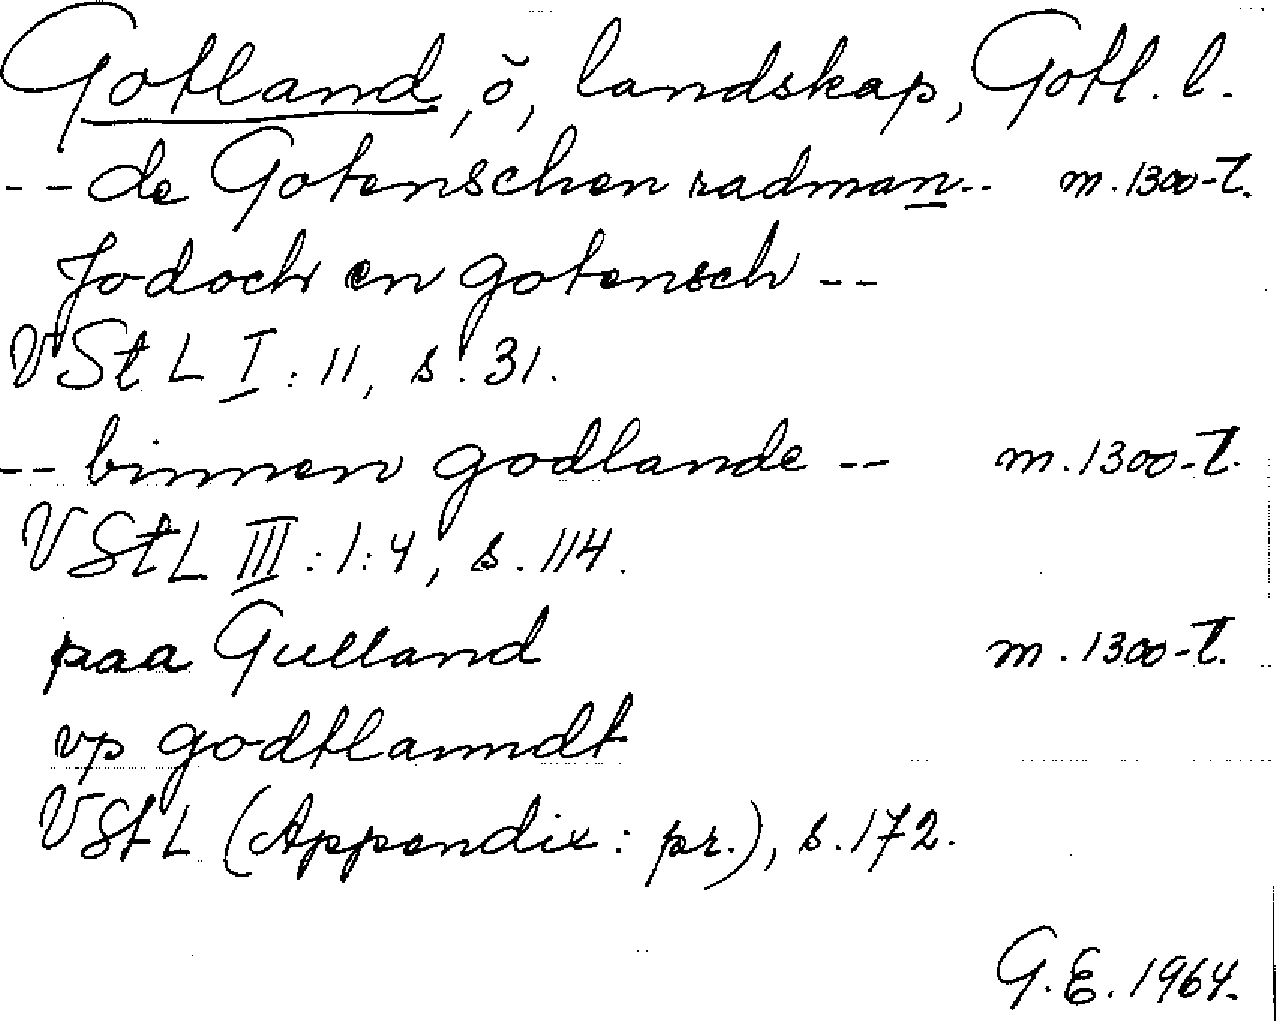 Gotland, ö, landskap, Gotl. l.
-- de Gotenschen radman -- m. 1300-t.
Jodoch en gotensch --
VStL I: 11, s. 31.
-- binnen godlande -- m. 1300-t.
VStL III: 1: 4, s. 114.
paa Gulland m. 1300-t.
vp godtlanndt
VStL (Appendix: pr.), s. 172.
G.E. 1964.